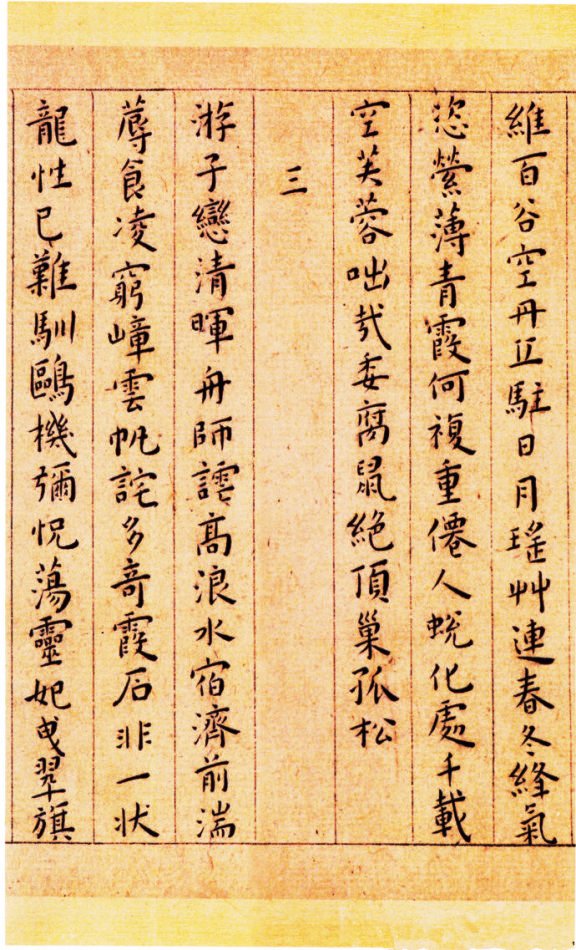 維百谷空丹丘駐日月瑤艸連春冬絳氣
恣縈薄青霞何複重僊人蛻化處千載
空芙蓉咄哉委腐鼠絶頂巢孤松
三
游子戀清暉舟師譚高浪水宿濟前湍
蓐食凌窮嶂雲帆詫多奇霞石非一状
龍性已難馴鷗機彌怳蕩靈妃曳翠旗